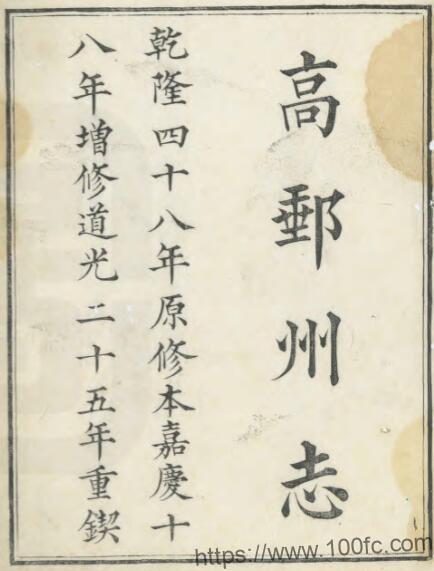 高郵州志
乾隆四十八年原修本嘉慶十
八年增修道光二十五年重鍥
https://www.100fc.com